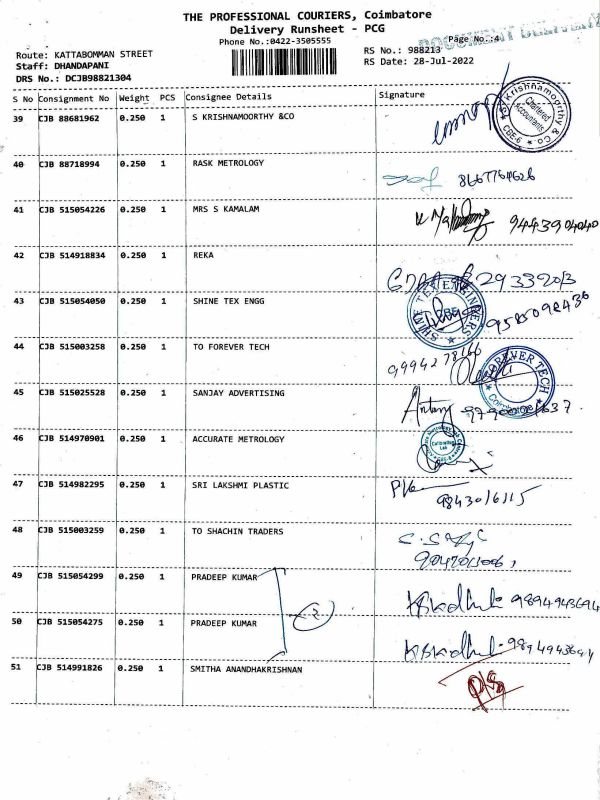 THE PROFESSIONAL COURIERS, Coimbatore
Delivery Runsheet - PCG
Phone No.:0422-3505555
Page No.:4
DOCUMENT DELIVERY
Route: KATTABOMMAN STREET
Staff: DHANDAPANI
DRS No.: DCJB98821304
RS No.: 988213
RS Date: 28-Jul-2022
S No Consignment No Weight PCS Consignee Details Signature
39 CJB 88681962 0.250 1 S KRISHNAMOORTHY &CO
S. Krishnamoorthy & Co. Chartered Accountants CBE-6
40 CJB 88718994 0.250 1 RASK METROLOGY
8667764626
41 CJB 515054226 0.250 1 MRS S KAMALAM
9443904040
42 CJB 514918834 0.250 1 REKA
43 CJB 515054050 0.250 1 SHINE TEX ENGG
SHINE TEX ENGINEERS
44 CJB 515003258 0.250 1 TO FOREVER TECH
9994278166
FOREVER TECH Coimbatore
45 CJB 515025528 0.250 1 SANJAY ADVERTISING
Antony
46 CJB 514970901 0.250 1 ACCURATE METROLOGY
Calibration Lab
47 CJB 514982295 0.250 1 SRI LAKSHMI PLASTIC
9843016115
48 CJB 515003259 0.250 1 TO SHACHIN TRADERS
49 CJB 515054299 0.250 1 PRADEEP KUMAR
9894943694
2
50 CJB 515054275 0.250 1 PRADEEP KUMAR
9894943694
51 CJB 514991826 0.250 1 SMITHA ANANDHAKRISHNAN